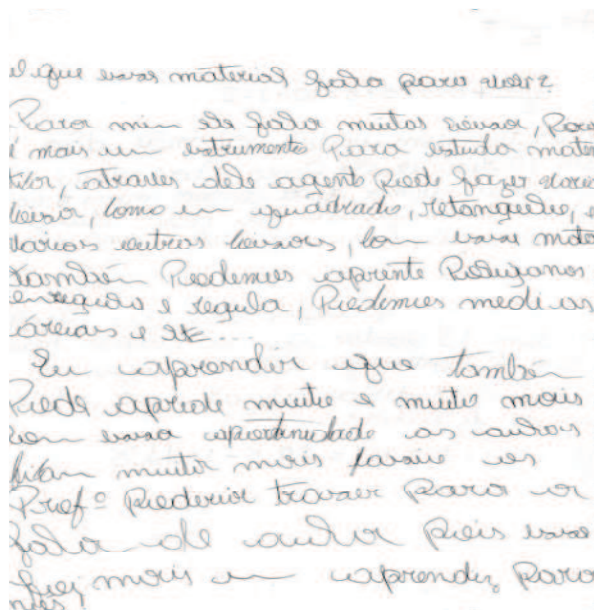 que essas material fala para você?
Para mim ele fala muitas coisas, Para
é mais um estrumento Para estudo mate
através dele agente Pode fazer vários
como um quadrado, retangulo, e
várias outras coisas, com esse mate
também Podemos aprente Poligonos
e regula, Podemos medi as
áreas e etc...
Eu aprendir que também
Pode aprede muito e muito mais
com essa oportunidade as aulas
ficam muito mais os
Profº poderior trazer para a
sala de aula pois esse
foi mais um aprendiz para
nós!